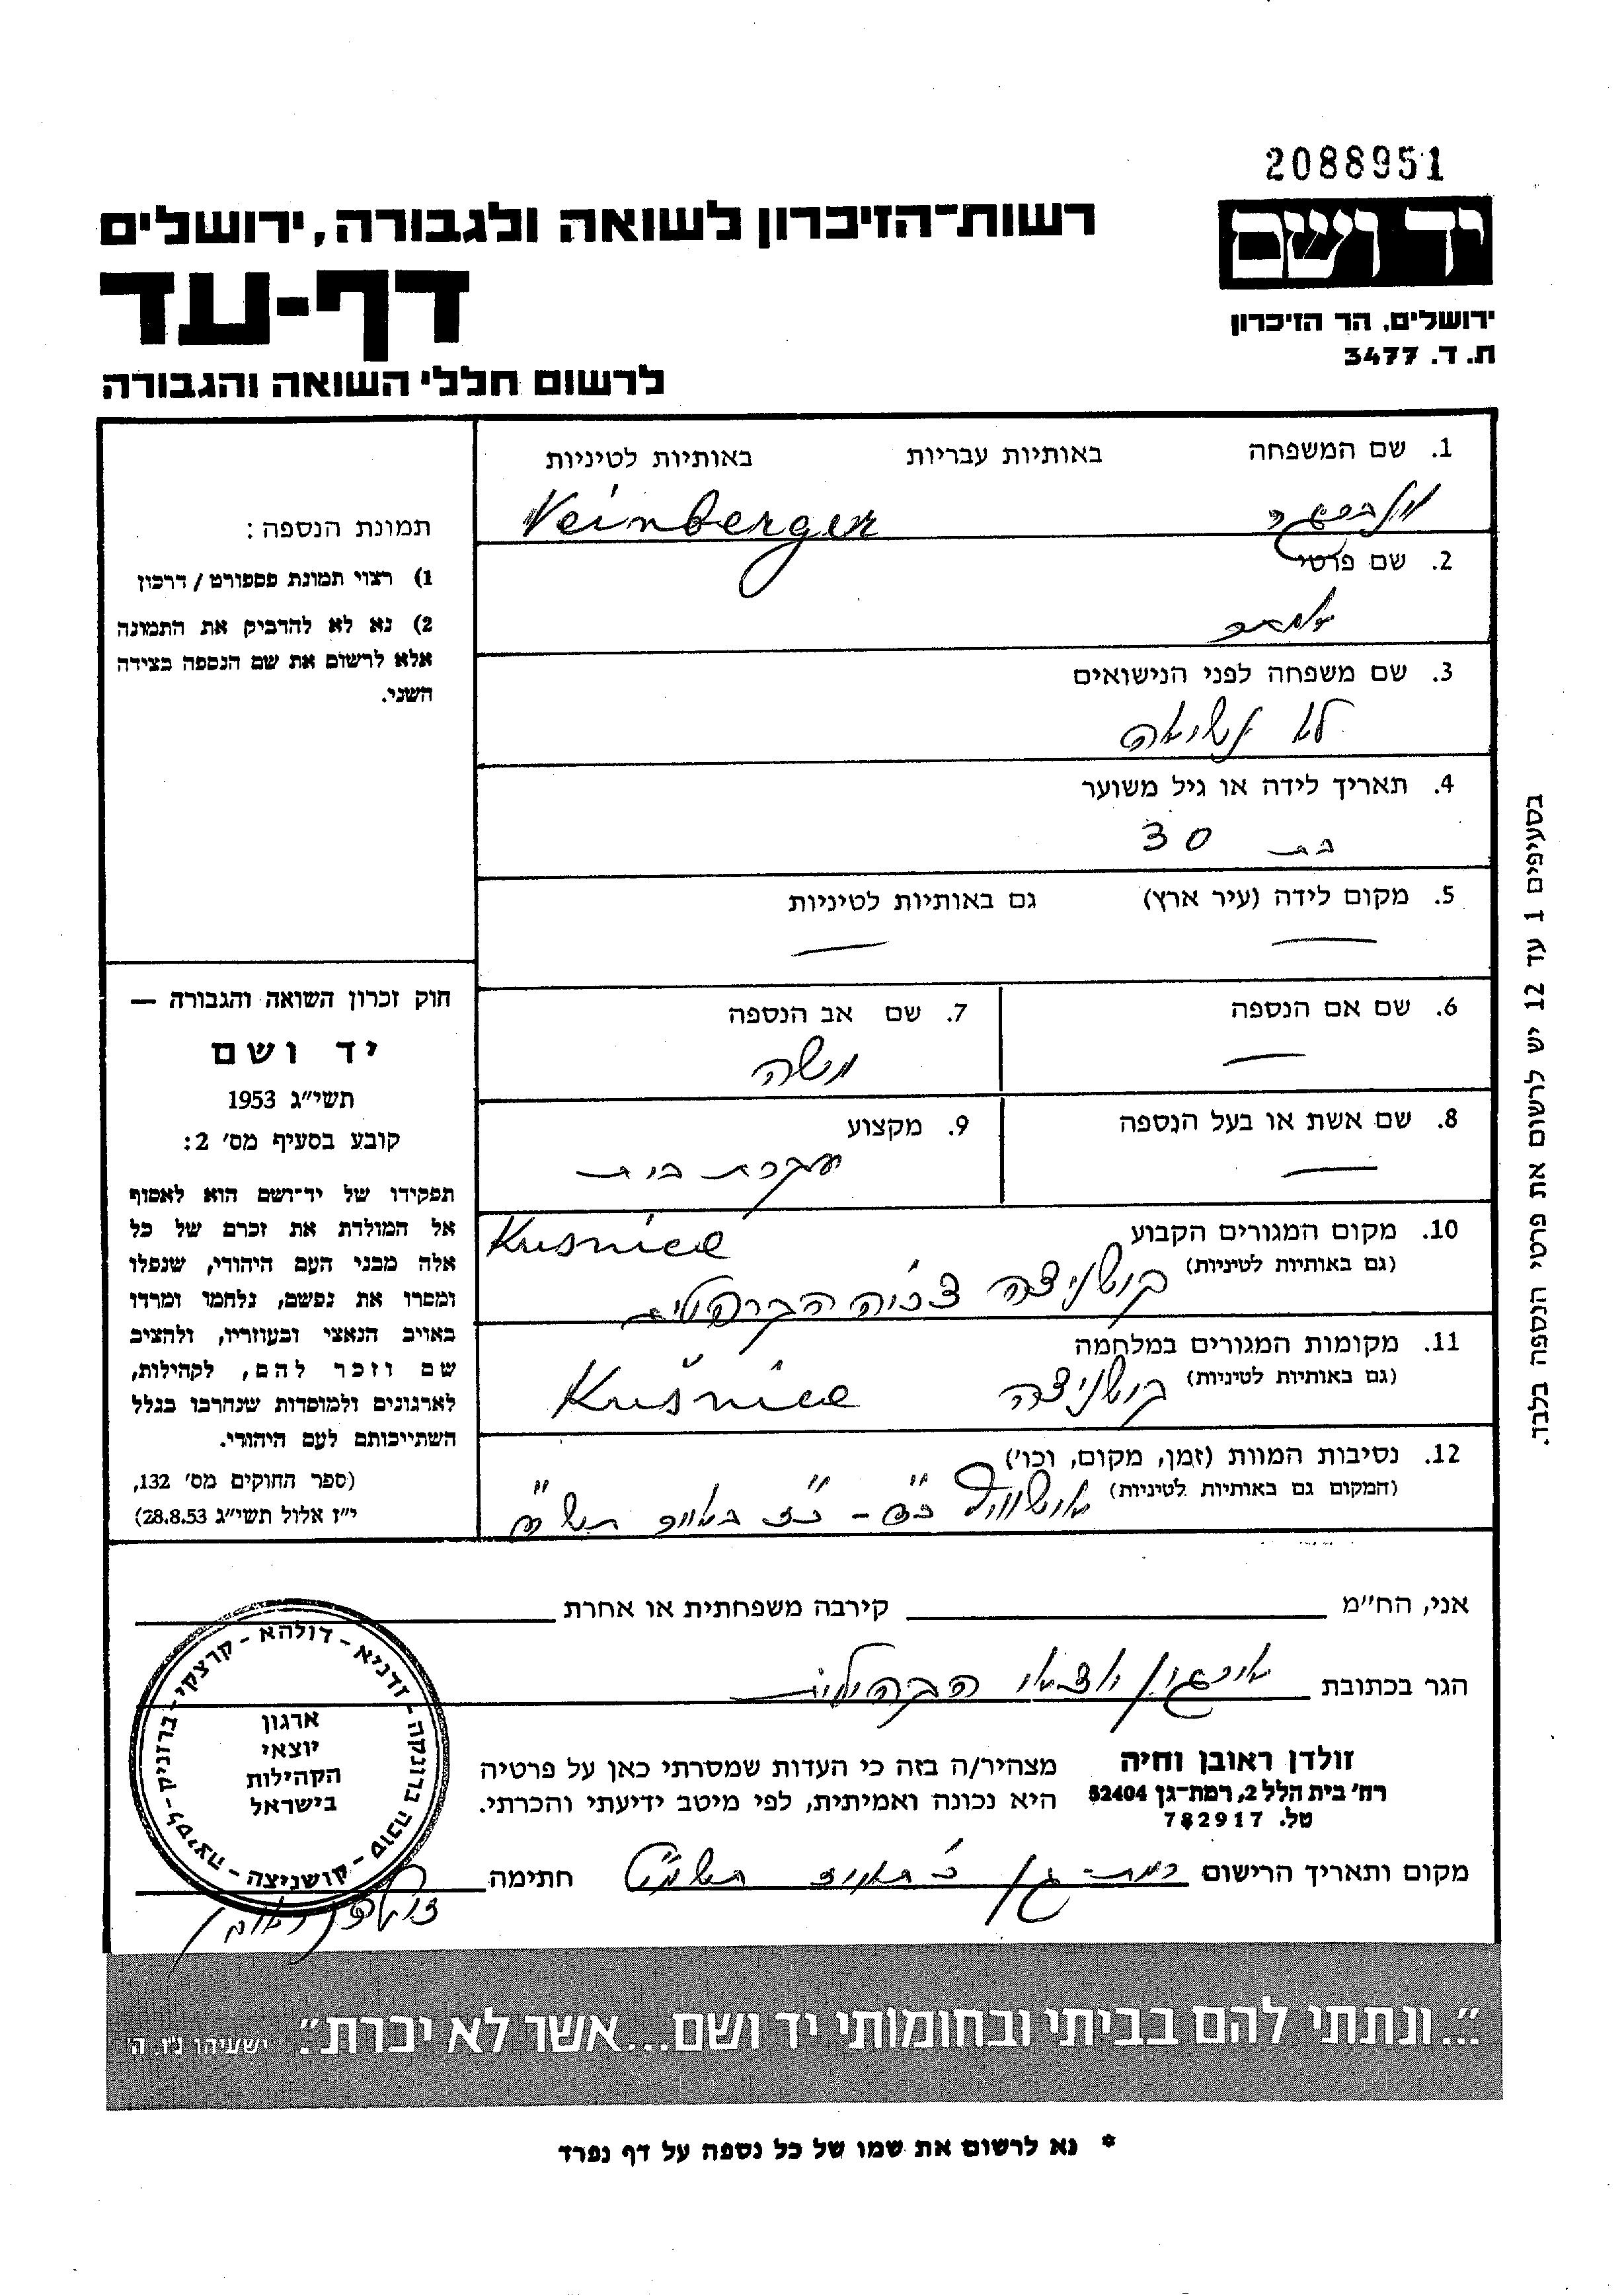 2088951
יד ושם
רשות־הזיכרון לשואה ולגבורה, ירושלים
דף-עד
ירושלים, הר הזיכרון
ת. ד. 3477
לרשום חללי השואה והגבורה
1. שם המשפחה באותיות עבריות באותיות לטיניות
Veinberger
2. שם פרטי
3. שם משפחה לפני הנישואים
לא נשיאה
4. תאריך לידה או גיל משוער
בת 30
5. מקום לידה (עיר ארץ) גם באותיות לטיניות
— —
6. שם אם הנספה
—
7. שם אב הנספה
משה
8. שם אשת או בעל הנספה
—
9. מקצוע
עקרת בית
10. מקום המגורים הקבוע Kusnice
(גם באותיות לטיניות) קושניצה
11. מקומות המגורים במלחמה
(גם באותיות לטיניות) קושניצה Kušnice
12. נסיבות המוות (זמן, מקום, וכו')
(המקום גם באותיות לטיניות)
תמונת הנספה:
1) רצוי תמונת פספורט / דרכון
2) נא לא להדביק את התמונה
אלא לרשום את שם הנספה בצידה
השני.
חוק זכרון השואה והגבורה —
יד ושם
תשי״ג 1953
קובע בסעיף מס׳ 2:
תפקידו של יד־ושם הוא לאסוף
אל המולדת את זכרם של כל
אלה מבני העם היהודי, שנפלו
ומסרו את נפשם, נלחמו ומרדו
באויב הנאצי ובעוזריו, ולהציב
שם וזכר להם, לקהילות,
לארגונים ולמוסדות שנחרבו בגלל
השתייכותם לעם היהודי.
(ספר החוקים מס׳ 132,
י״ז אלול תשי״ג 28.8.53)
בסעיפים 1 עד 12 יש לרשום את פרטי הנספה בלבד.
אני, הח״מ קירבה משפחתית או אחרת
הגר בכתובת ארגון יוצאי הקהילות
זולדן ראובן וחיה
רח׳ בית הלל 2, רמת־גן 52404
טל. 782917
מצהיר/ה בזה כי העדות שמסרתי כאן על פרטיה
היא נכונה ואמיתית, לפי מיטב ידיעתי והכרתי.
מקום ותאריך הרישום רמת-גן חתימה
זולדן ראובן
ארגון
יוצאי
הקהילות
בישראל
"...ונתתי להם בביתי ובחומותי יד ושם...אשר לא יכרת." ישעיהו נ״ו. ה׳
* נא לרשום את שמו של כל נספה על דף נפרד